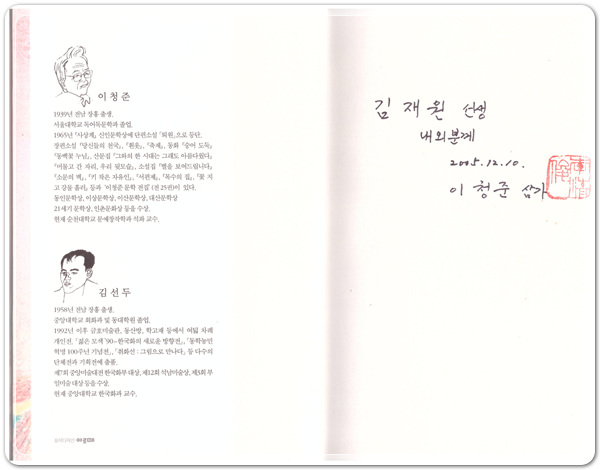 이청준
1939년 전남 장흥 출생.
서울대학교 독어독문학과 졸업.
1965년 『사상계』 신인문학상에 단편소설 「퇴원」으로 등단.
장편소설 『당신들의 천국』, 『흰옷』, 『축제』, 동화 『숭어 도둑』,
『동백꽃 누님』, 산문집 『그와의 한 시대는 그래도 아름다웠다』,
『야윈 젖가슴』, 소설집 『별을 보여드립니다』,
『소문의 벽』, 『키 작은 자유인』, 『서편제』, 『목수의 집』, 『꽃 지
고 강물 흘러』 등과 '이청준 문학 전집'(전 25권)이 있다.
동인문학상, 이상문학상, 이산문학상, 대산문학상
21세기 문학상, 인촌문화상 등을 수상.
현재 순천대학교 문예창작학과 석좌 교수.
김선두
1958년 전남 장흥 출생.
중앙대학교 회화과 및 동대학원 졸업.
1992년 이후 금호미술관, 동산방, 학고재 등에서 여덟 차례
개인전. 「젊은 모색 '90-한국화의 새로운 방향전」, 「동학농민
혁명 100주년 기념전」, 「취화선 : 그림으로 만나다」 등 다수의
단체전과 기획전에 출품.
제7회 중앙미술대전 한국화부 대상, 제12회 석남미술상, 제3회 부
일미술 대상 등을 수상.
현재 중앙대학교 한국화과 교수.
김재원 선생
내외분께
2005. 12. 10.
이청준 삼가